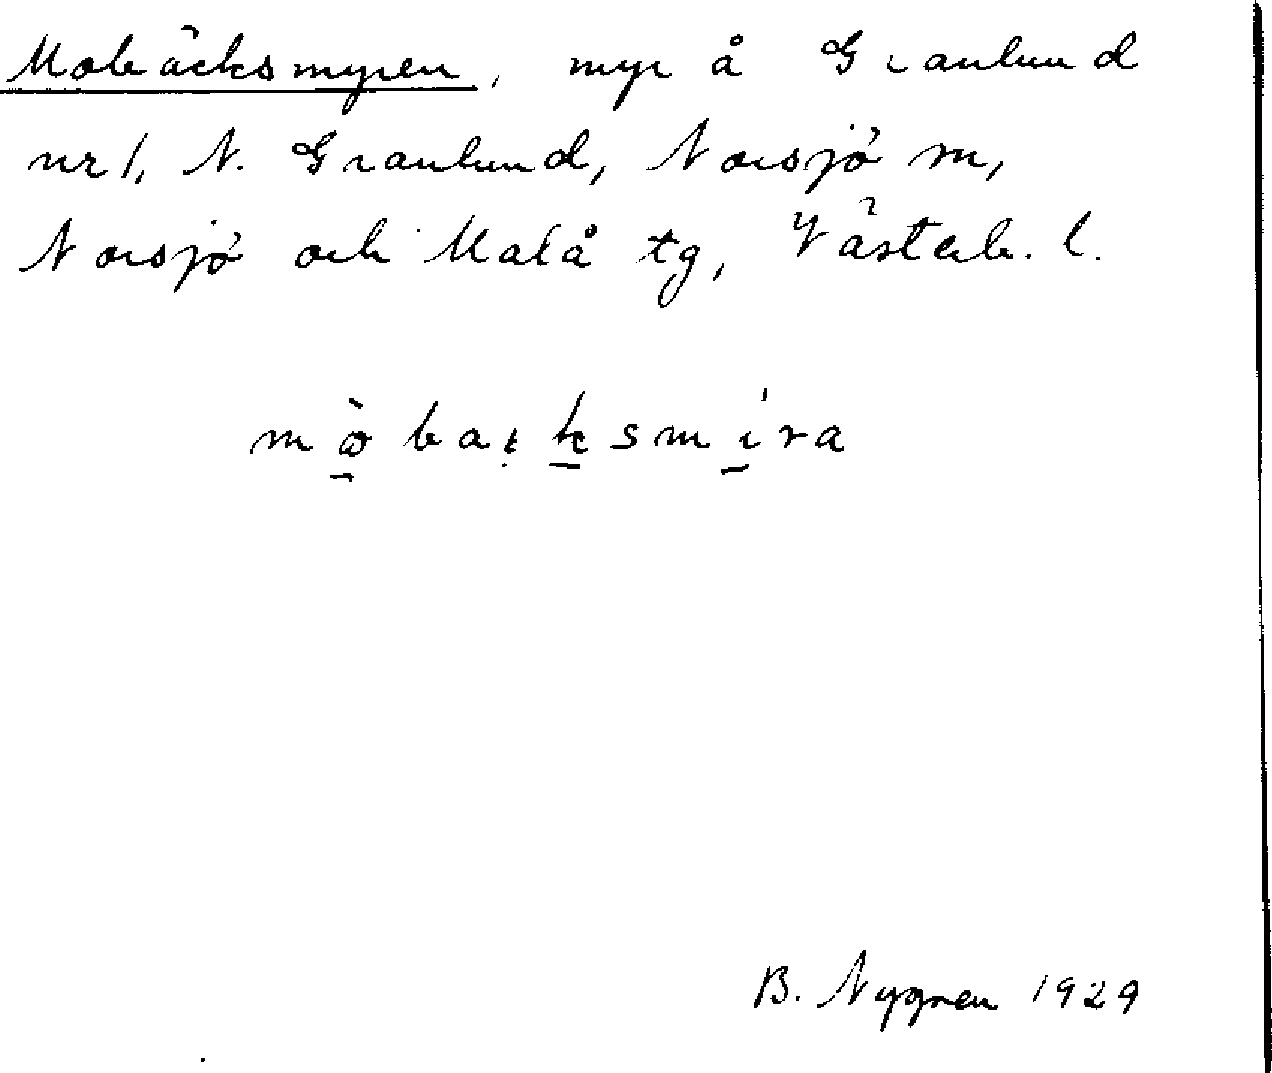 Mobäcksmyren, myr å Granlund
nr 1, N. Granlund, Norsjö sn,
Norsjö och Malå tg, Västerb. l.
B. Nygren 1929